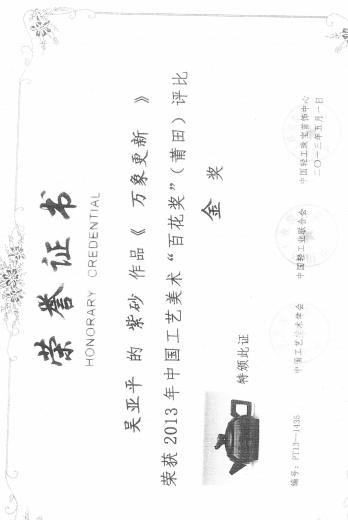 荣誉证书
HONORARY CREDENTIAL
吴亚平 的 紫砂 作品《 万象更新 》
荣获 2013 年中国工艺美术“百花奖”（莆田）评比
金奖
特颁此证
编号：PT13—1435
中国工艺美术学会
中国轻工业联合会
中国轻工珠宝首饰中心
二〇一三年五月一日